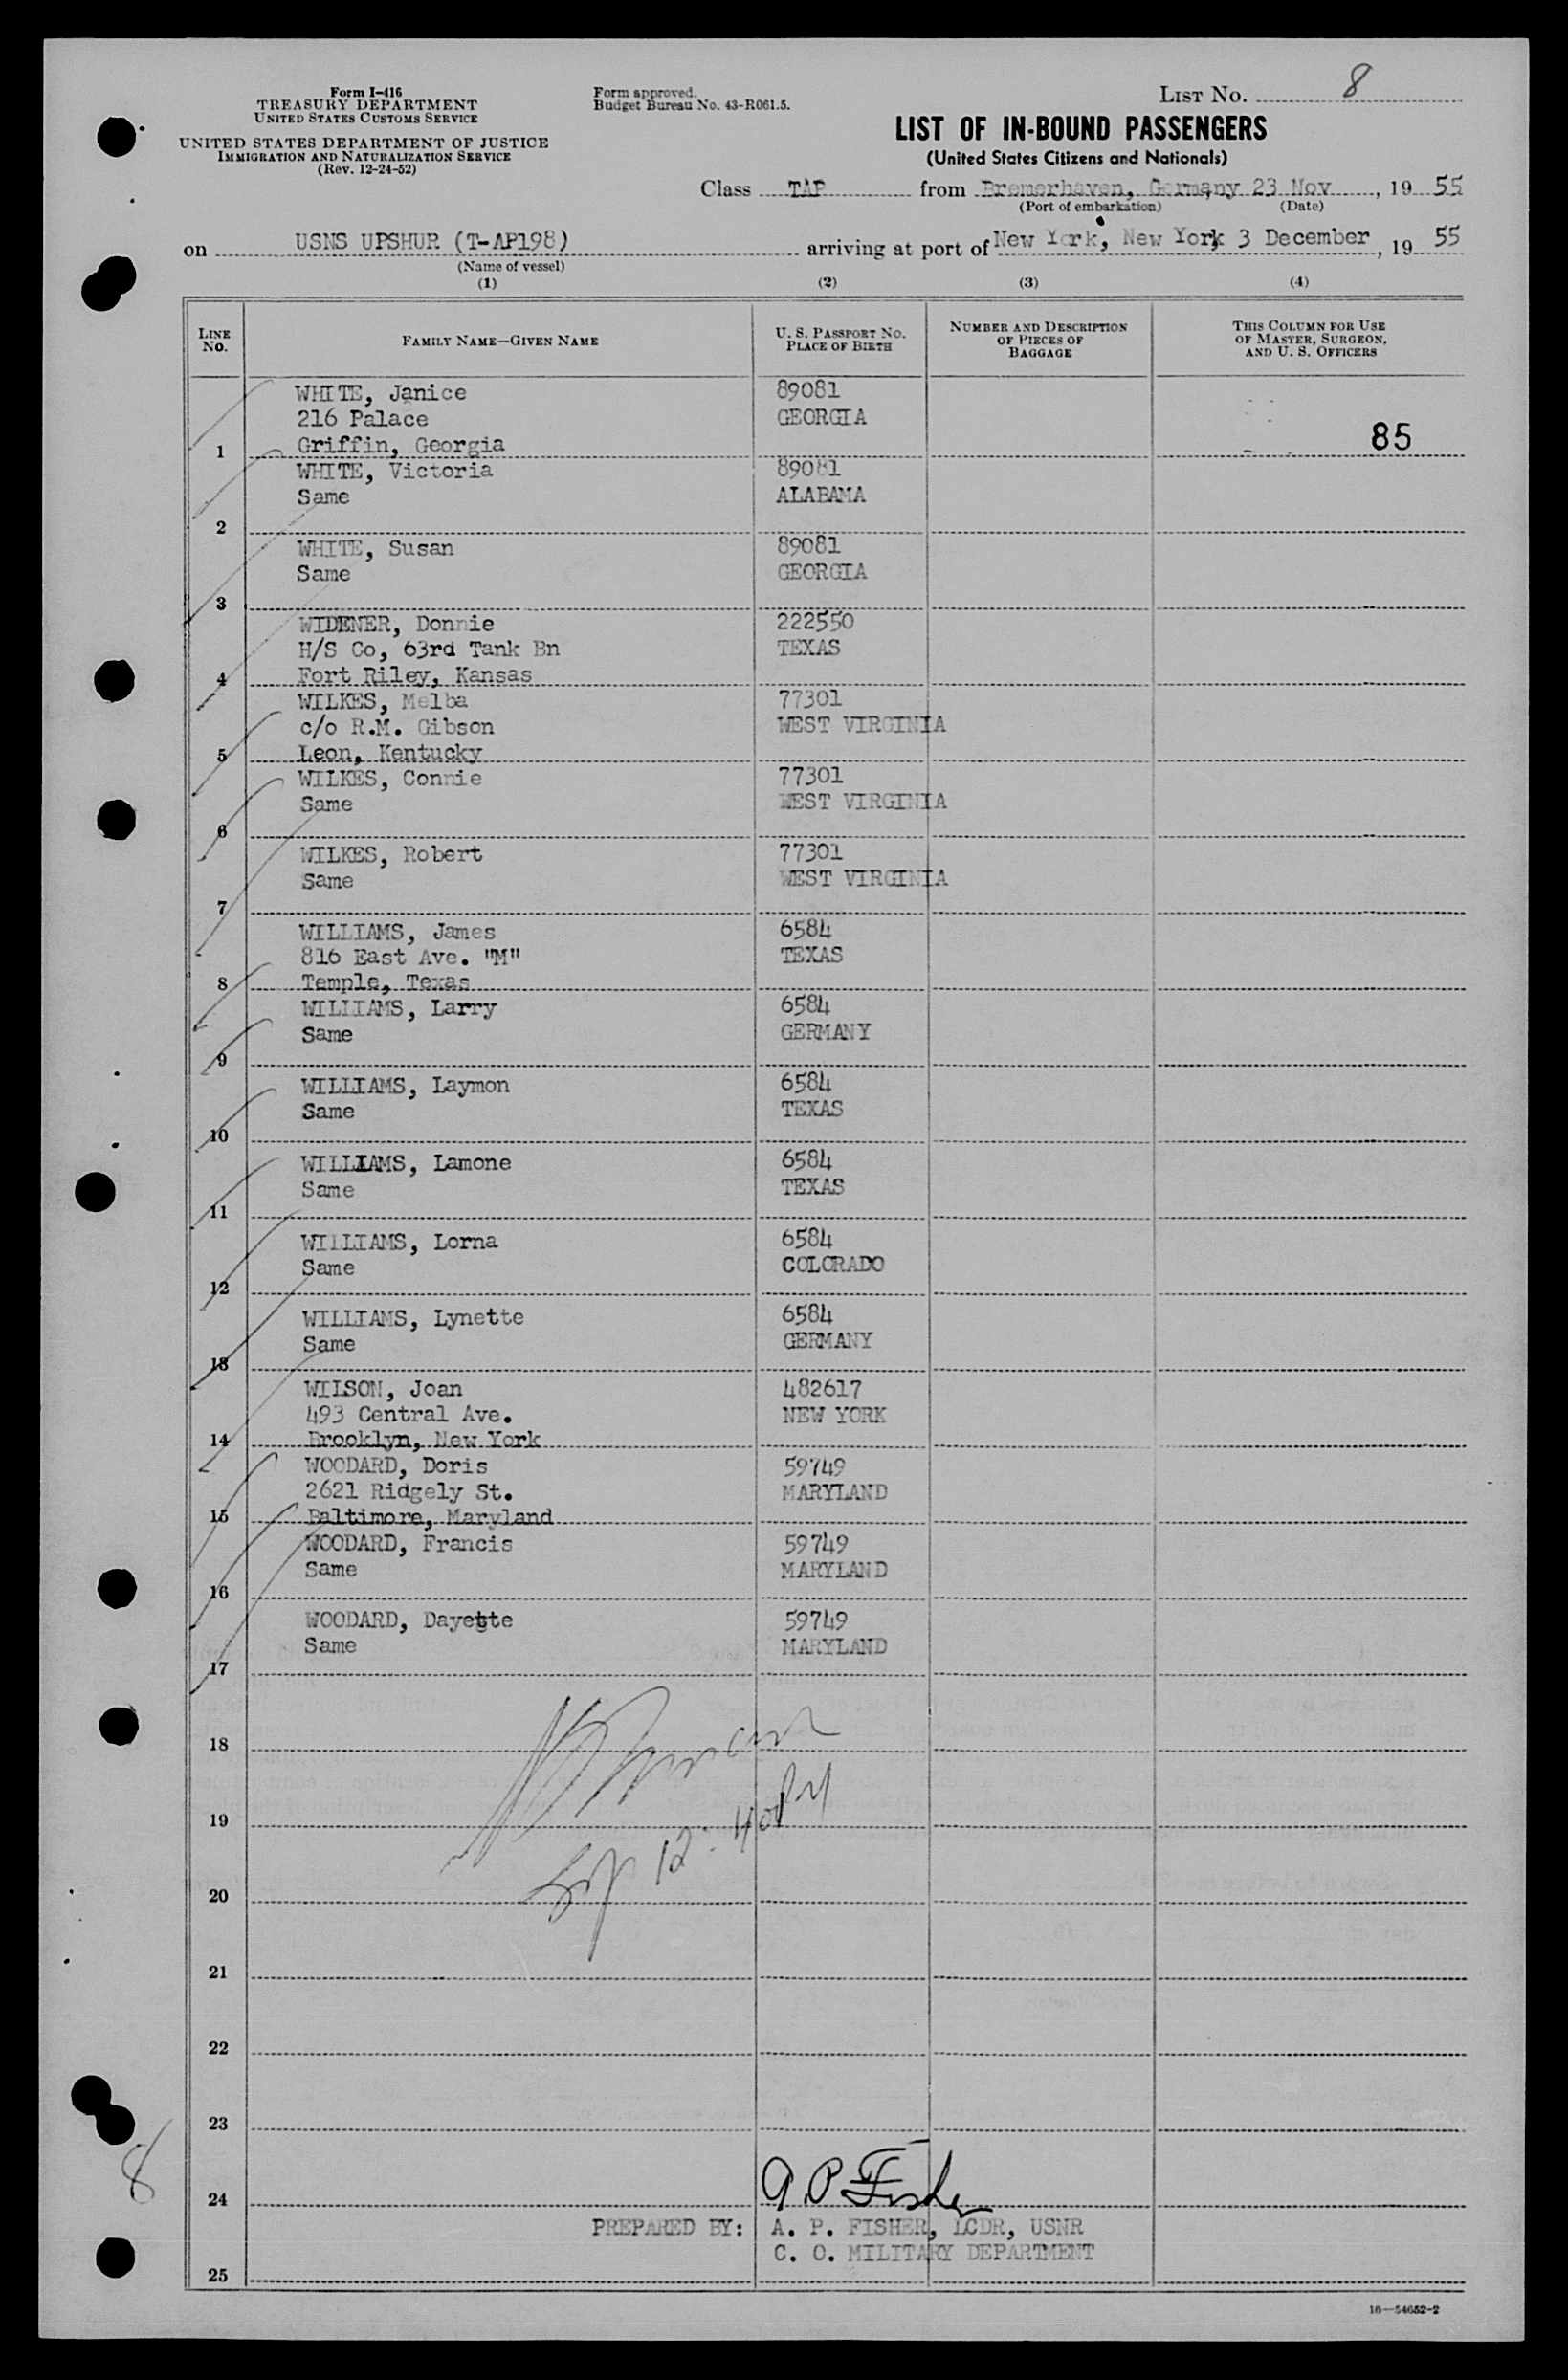 Form I-416
TREASURY DEPARTMENT
UNITED STATES CUSTOMS SERVICE
UNITED STATES DEPARTMENT OF JUSTICE
IMMIGRATION AND NATURALIZATION SERVICE
(Rev. 12-24-52)
Form approved.
Budget Bureau No. 43-R061.5.
LIST No. 8
LIST OF IN-BOUND PASSENGERS
(United States Citizens and Nationals)
Class TAP from Bremerhaven, Germany 23 Nov, 19 55
(Port of embarkation) (Date)
on USNS UPSHUR (T-AP198) arriving at port of New York, New York 3 December, 19 55
(Name of vessel)
(1) (2) (3) (4)
LINE No.
FAMILY NAME—GIVEN NAME
U. S. PASSPORT No.
PLACE OF BIRTH
NUMBER AND DESCRIPTION OF PIECES OF BAGGAGE
THIS COLUMN FOR USE OF MASTER, SURGEON, AND U. S. OFFICERS
WHITE, Janice 89081
216 Palace GEORGIA
1 Griffin, Georgia 85
WHITE, Victoria 89081
Same ALABAMA
2
WHITE, Susan 89081
Same GEORGIA
3
WIDENER, Donnie 222550
H/S Co, 63rd Tank Bn TEXAS
4 Fort Riley, Kansas
WILKES, Melba 77301
c/o R.M. Gibson WEST VIRGINIA
5 Leon, Kentucky
WILKES, Connie 77301
Same WEST VIRGINIA
6
WILKES, Robert 77301
Same WEST VIRGINIA
7
WILLIAMS, James 6584
816 East Ave. "M" TEXAS
8 Temple, Texas
WILLIAMS, Larry 6584
Same GERMANY
9
WILLIAMS, Laymon 6584
Same TEXAS
10
WILLIAMS, Lamone 6584
Same TEXAS
11
WILLIAMS, Lorna 6584
Same COLORADO
12
WILLIAMS, Lynette 6584
Same GERMANY
13
WILSON, Joan 482617
493 Central Ave. NEW YORK
14 Brooklyn, New York
WOODARD, Doris 59749
2621 Ridgely St. MARYLAND
15 Baltimore, Maryland
WOODARD, Francis 59749
Same MARYLAND
16
WOODARD, Dayette 59749
Same MARYLAND
17
18
19
12:40 PM
20
21
22
23
8
24
A P Fisher
PREPARED BY: A. P. FISHER, LCDR, USNR
C. O. MILITARY DEPARTMENT
25
16—54652-2